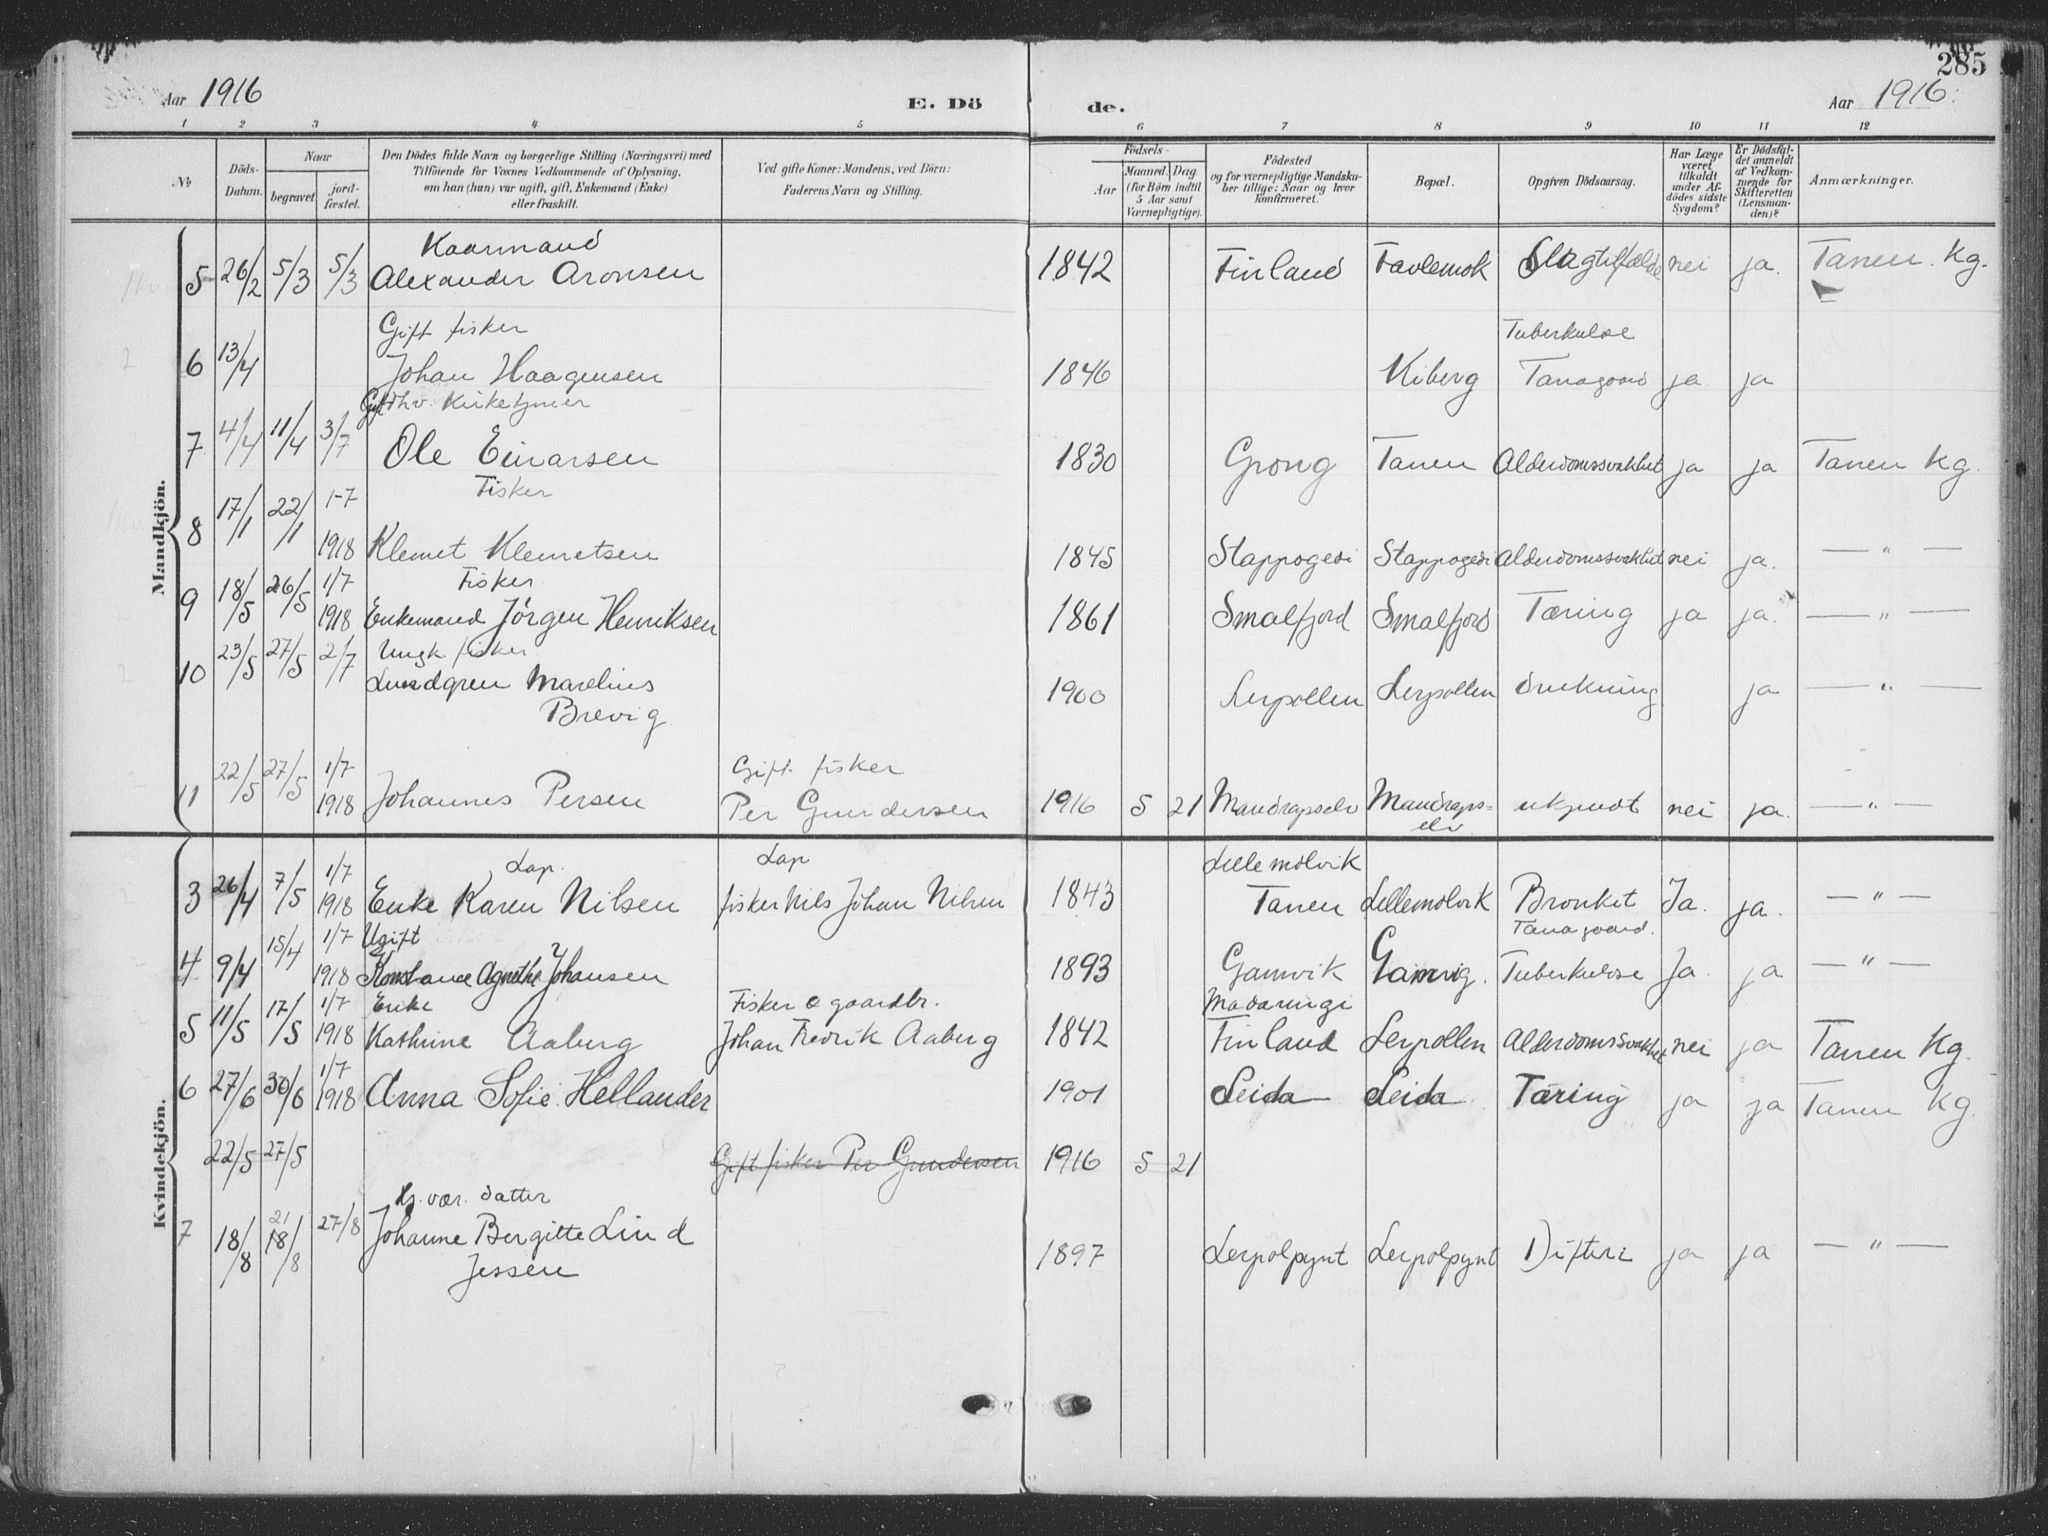 285
Aar 1916
E. Dö
de.
Aar 1916.
1 2 3 4 5 6 7 8 9 10 11 12
No
Döds-Datum.
Naar
begravet.
jord-fæstet.
Den Dödes fulde Navn og borgerlige Stilling (Næringsvei) med
Tilföiende for Voxnes Vedkommende af Oplysning,
om han (hun) var ugift, gift, Enkemand (Enke)
eller fraskilt.
Ved gifte Koner: Mandens, ved Börn:
Faderens Navn og Stilling.
Födsels-
Aar
Maaned. Dag.
(for Börn indtil
5 Aar samt
Værnepligtige).
Födested
og for værnepligtige Mandska-
ber tillige: Naar og hvor
konfirmeret.
Bopæl.
Opgiven Dödsaarsag.
Har Læge
været
tilkaldt
under Af-
dödes sidste
Sygdom?
Er Dödsfal-
det anmeldt
af Vedkom-
mende for
Skifteretten
(Lensman-
den)?
Anmærkninger.
Mandkjön.
Kaarmand
5 26/2 5/3 5/3 Alexander Aronsen 1842 Finland Favlemok nei ja. Tanen Kg.
Gift fisker
Tuberkulose
6 13/4 Johan Haagensen 1846 Kiberg Tanagaard ja ja
Gift fhv. Kirketjener
7 4/4 11/4 3/7 Ole Einarsen 1830 Grong Tanen Alderdomssvakhet ja ja Tanen Kg.
Fisker
8 17/1 22/1 1-7 1918 Klemet Klemetsen 1845 Stappogedi Stappogedi Alderdomssvakhet nei ja. — " —
Fisker
9 18/5 26/5 1/7 1918 Enkemand Jörgen Henriksen 1861 Smalfjord Smalfjord Tæring ja ja. — " —
Ungk. fisker
10 23/5 27/5 2/7 Lundgren Marelius
Brevig 1900 Lerpollen Lerpollen drukning ja — " —
Gift fisker
11 22/5 27/5 1/7 1918 Johannes Persen Per Gundersen 1916 5 21 Mandrapselv Mandraps-
elv ukjendt nei ja. — " —
Kvindekjön.
Lap. Lap Lille molvik
3 26/4 7/5 1/7 1918 Enke Karen Nilsen fisker Nils Johan Nilsen 1843 Tanen Lillemolvik Bronkit Ja. ja. — " —
Ugift Tanagaard.
4 9/4 15/4 1/7 1918 Konstance Agnethe Johansen 1893 Gamvik Gamvig. Tuberkulose Ja. ja — " —
Enke Fisker & gaardbr. Madaningi
5 11/5 17/5 1/7 1918 Kathrine Aaberg Johan Fredrik Aaberg 1842 Finland Lerpollen Alderdomssvakhet nei ja Tanen Kg.
6 27/6 30/6 1/7 1918 Anna Sofie Hellander 1901 Leida Leida Tæring ja ja Tanen Kg.
22/5 27/5 Gift fisker Per Gundersen 1916 5 21
datter
7 18/8 21 18/8 27/8 Johanne Bergitte Lind
Jessen 1897 Lerpolpynt Lerpolpynt Difteri ja ja — " —